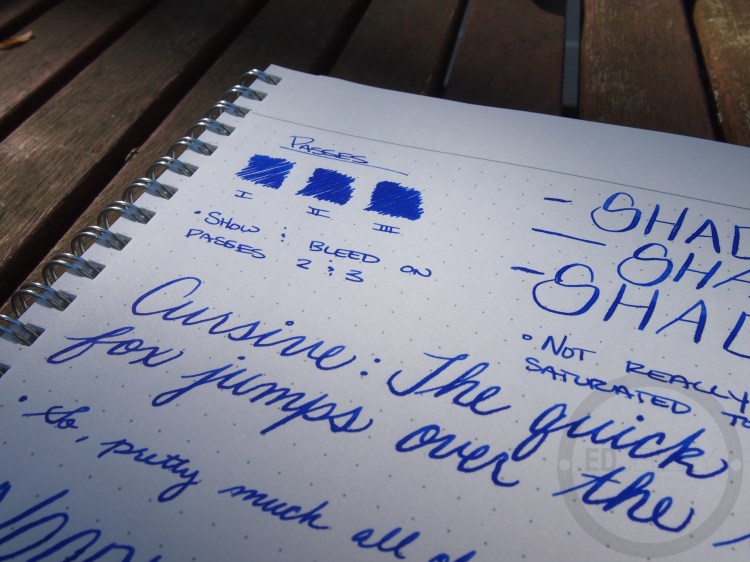 PASSES
I II III
• SHOW : BLEED ON
PASSES 2 : 3
- SHAD
SHA
- SHAD
• NOT REALLY
SATURATED TO
Cursive: The quick
fox jumps over the
• So, pretty much all
ED